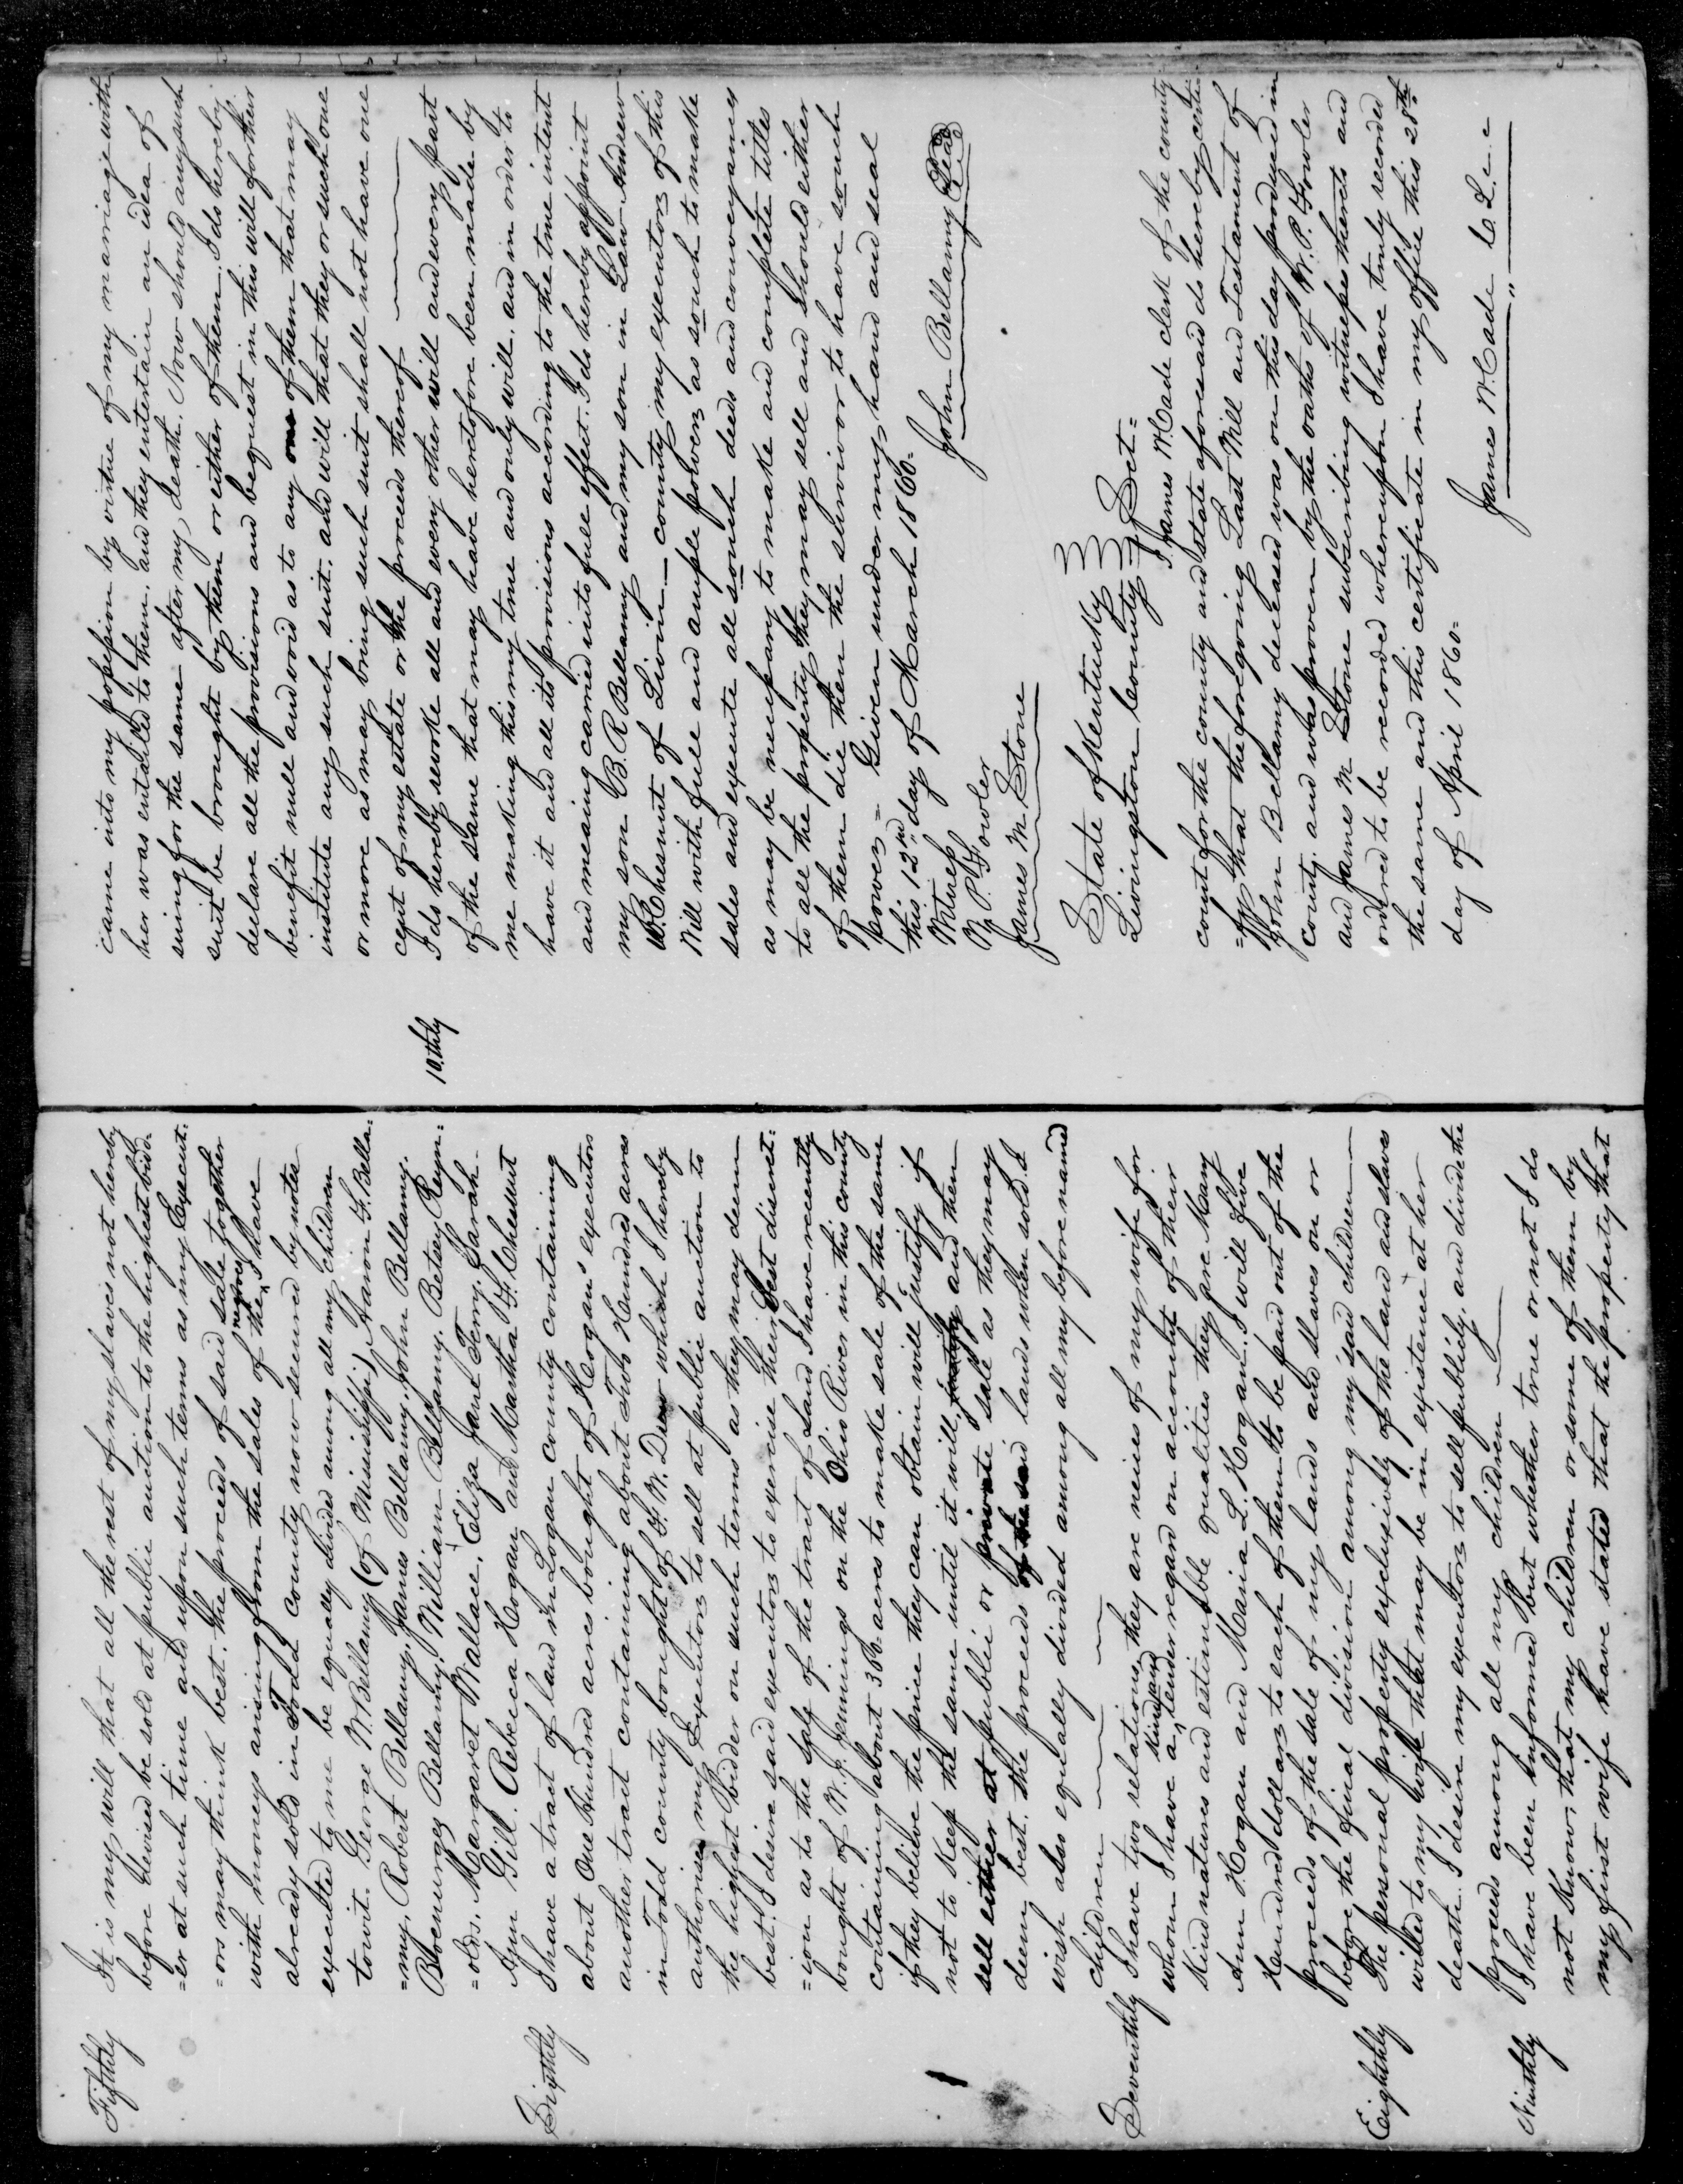 Fifthly It is my will that all the rest of my slaves not hereby
before devised be sold at public auction to the highest bidd-
=er at such time and upon such terms as my Execut:
=ors may think best. The proceeds of said sale together
with moneys arising from the sales of the negroes I have
already sold in Todd County now secured by notes
executed to me be equally divided among all my children
towit. George W. Bellamy (of Mississippi), Aaron F. Bella-
=my, Robert Bellamy, James Bellamy, John Bellamy.
Bloenurges Bellamy. William Bellamy. Betsey Reyn:
=olds, Margaret Wallace, Eliza Jane Terry. Sarah-
Ann Gill. Rebecca Hogan and Martha F. Chesnut
Sixthly I have a tract of land in Logan county containing
about One Hundred acres bought of Hogan's executors
another tract containing about Two Hundred acres
in Todd county bought of F. W. Dew which I hereby
authorise my Executors to sell at public auction to
the highest bidder on such terms as they may deem
best. I desire said executors to exercise their best discret:
=ion as to the sale of the tract of Land I have recently
bought of W. J. Jennings on the Ohio River in this county
containing about 300 acres to make sale of the same
if they believe the price they can obtain will justify if
not to keep the same until it will justify and then
sell either at public or private sale as they may
deem best. the proceeds of the said lands when sold. I
wish also equally divided among all my before named
children
Seventhly I have two relations, they are neices of my wife for
whom I have a kind and tender regard on account of their
kind natures and estimable qualities they are Mary
Ann Hogan and Maria L. Hogan. I will five
Hundred dollars to each of them to be paid out of the
proceeds of the sale of my lands and slaves on or
before the final division among my said children
Eighthly The personal property exclusively of the land and slaves
willed to my wife that may be in existence at her
death I desire my executors to sell publicly. and divide the
proceeds among all my children
Ninthly I have been informed but whether true or not I do
not know that my children or some of them by
my first wife have stated that the property that
came into my possession by virtue of my marriage with
her was entailed to them. and they entertain an idea of
suing for the same after my death. Now should any such
suit be brought by them or either of them. I do hereby
declare all the provisions and bequest in this will for their
benefit null and void as to any one of them that may
institute any such suit. and will that they or such one
or more as may bring such suit shall not have one
cent of my estate or the proceeds thereof
10thly I do hereby revoke all and every other will and every part
of the same that may have heretofore been made by
me making this my true and only will. and in order to
have it and all its provisions according to the true intent
and meaning carried into full effect. I do hereby appoint
my son B. R Bellamy and my son in Law Andrew
B. Chesnut of Livin- county my executors of this
Will with full and ample powers as souch to make
sales and execute all souch deeds and conveyances
as may be necessary to make and complete titles
to all the property they may sell and should either
of them die then the survivor to have souch
power = Given under my hand and seal
this 12nd day of March 1860=
Witness
W. P. Fowler John Bellamy Seal
James M. Stone
State of Kentucky
Livingston County Sct=
I James W. Cade clerk of the county
court for the county and state aforesaid do hereby certi
=fy that the foregoing Last Will and Testament of
John Bellamy deceased was on this day produced in
court, and was proven by the oaths of W. P. Fowler
and James M Stone subscribing witnesses thereto and
ordered to be recorded whereupon I have truly recorded
the same and this certificate in my office this 28th
day of April 1860=
James W. Cade C L. c. c